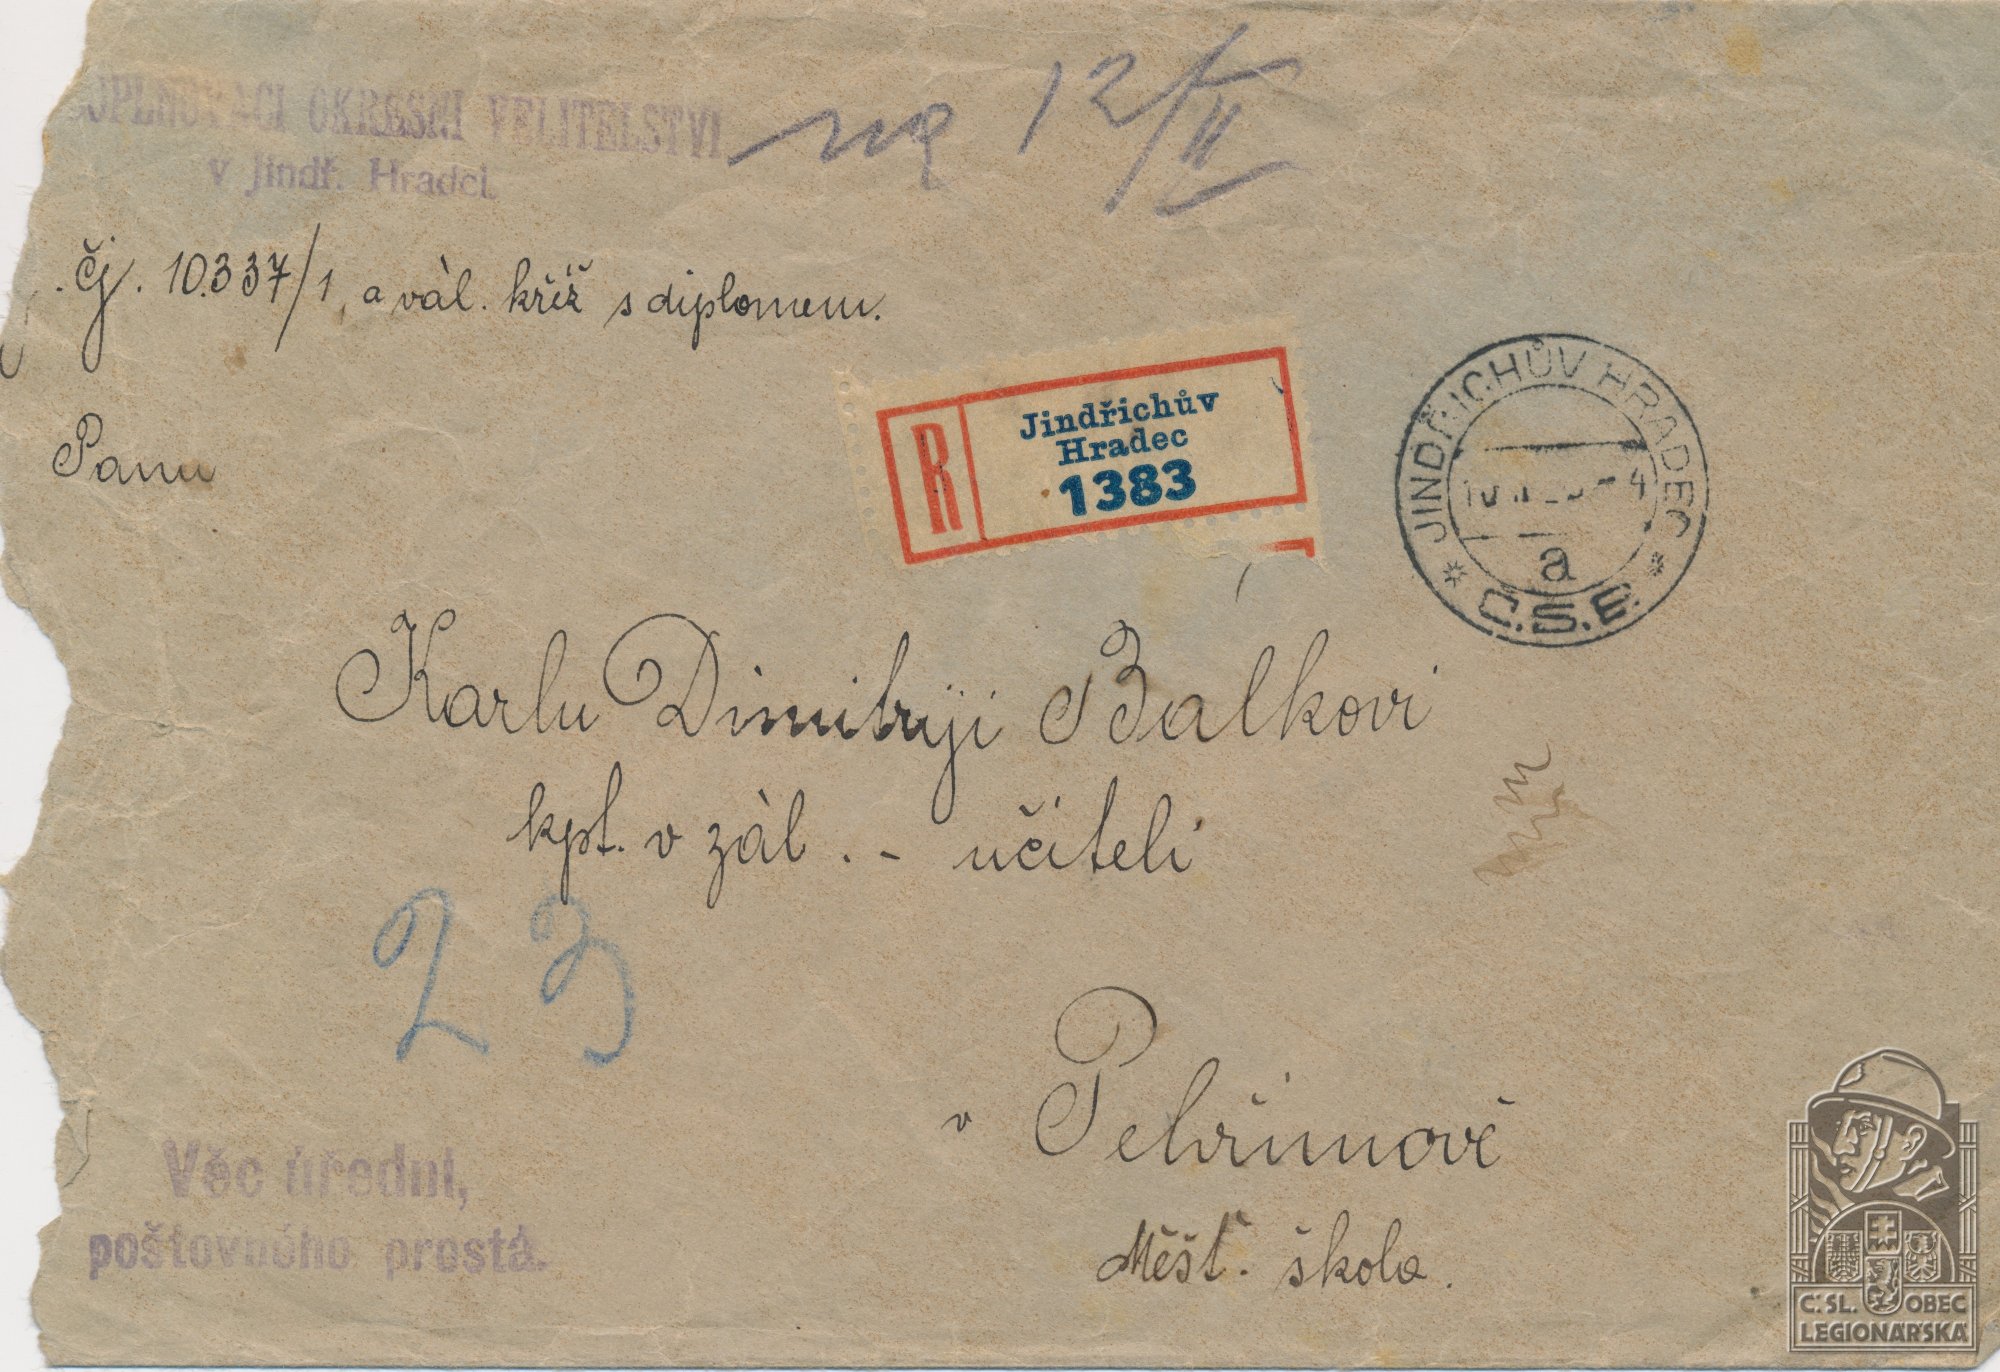 DOPLŇOVACÍ OKRESNÍ VELITELSTVÍ
v Jindř. Hradci.
na 12/II
čj. 10.337/1, a vál. kříž s diplomem.
Panu
R
Jindřichův
Hradec
1383
JINDŘICHŮV HRADEC
a
Č.S.R.
Karlu Dimitriji Bálkovi
kpt. v zál. - učiteli
23
v Pelhřimově
Měšť. škola.
Věc úřední,
poštovného prostá.
Č.SL. OBEC
LEGIONÁŘSKÁ